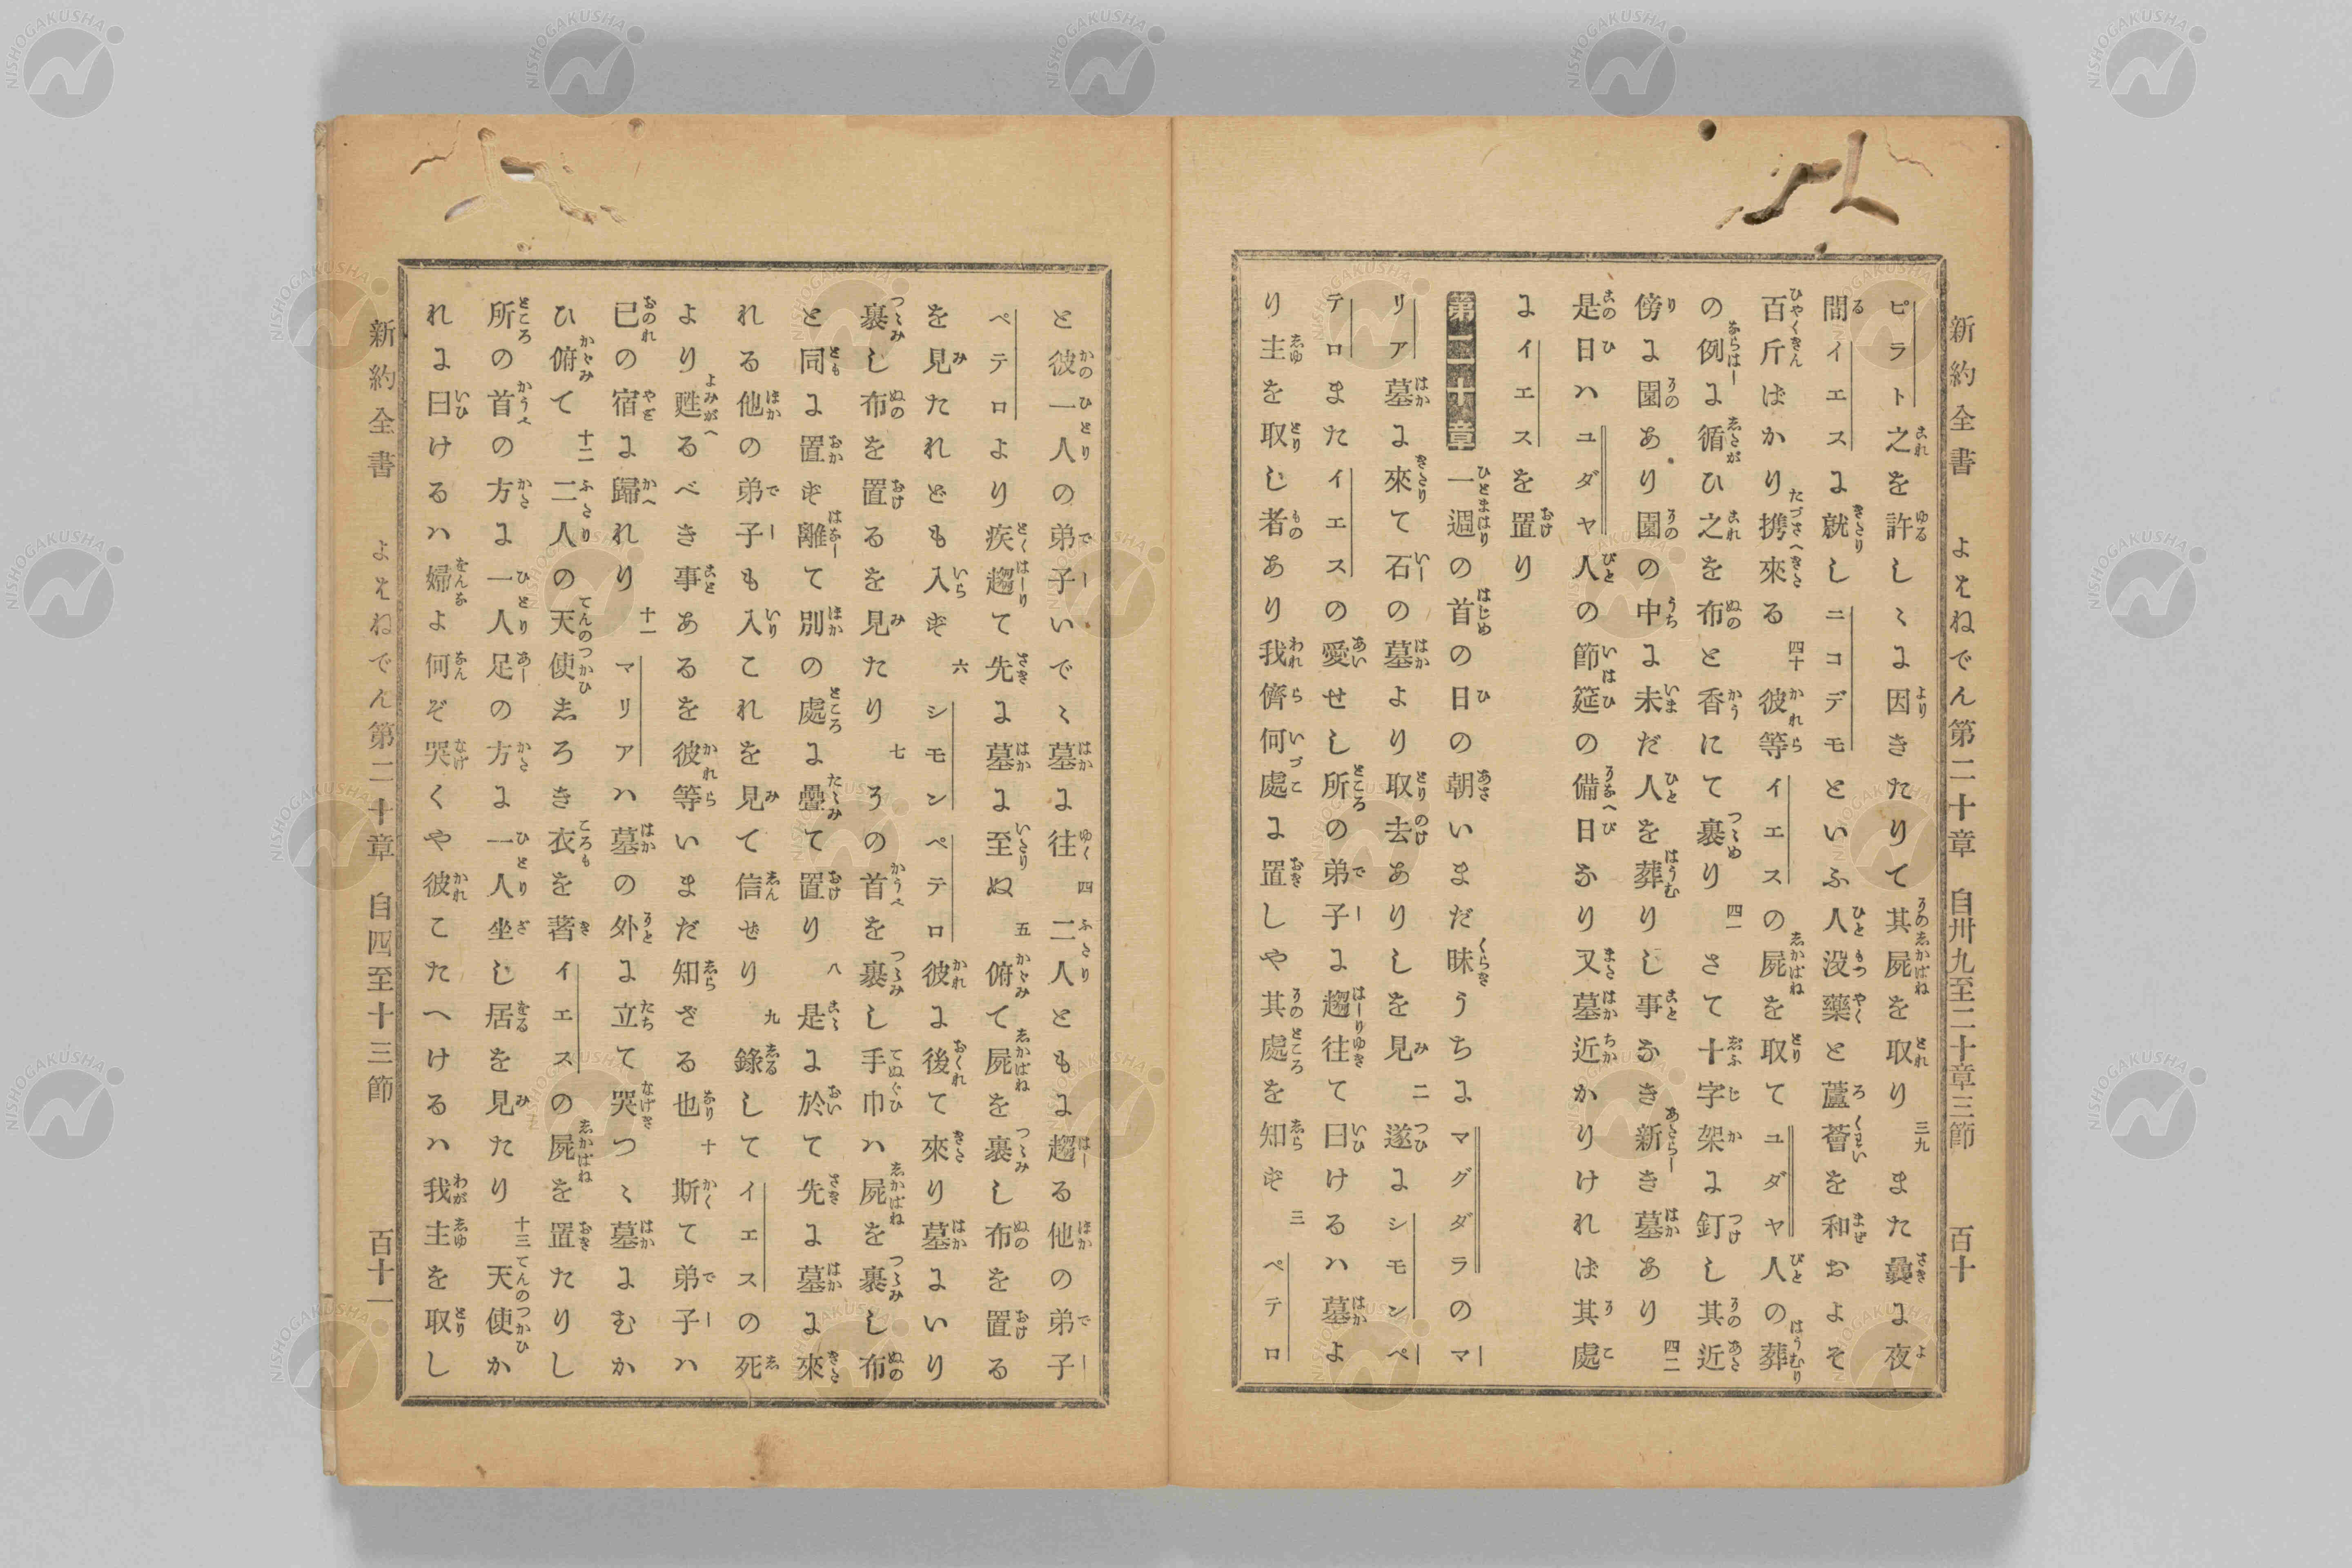 新約全書 よはねでん第二十章 自卅九至二十章三節 百十
ピラト之を許しゝに因きたりて其屍を取り 三九 また曩に夜
間イエスに就しニコデモといふ人没藥と蘆薈を和およそ
百斤ばかり携來る 四十 彼等イエスの屍を取てユダヤ人の葬
の例に循ひ之を布と香にて裹り 四一 さて十字架に釘し其近
傍に園あり園の中に未だ人を葬りし事なき新き墓あり 四二
是日ハユダヤ人の節筵の備日なり又墓近かりければ其處
にイエスを置り
第二十章 一週の首の日の朝いまだ昧うちにマグダラのマ
リア墓に來て石の墓より取去ありしを見 二 遂にシモンペ
テロまたイエスの愛せし所の弟子に趨往て曰けるハ墓よ
り主を取し者あり我儕何處に置しや其處を知ず 三 ペテロ
と彼一人の弟子いでゝ墓に往 四 二人ともに趨る他の弟子
ペテロより疾趨て先に墓に至ぬ 五 俯て屍を裹し布を置る
を見たれども入ず 六 シモンペテロ彼に後て來り墓にいり
裹し布を置るを見たり 七 その首を裹し手巾ハ屍を裹し布
と同に置ず離て別の處に疊て置り 八 是に於て先に墓に來
れる他の弟子も入これを見て信せり 九 錄してイエスの死
より甦るべき事あるを彼等いまだ知ざる也 十 斯て弟子ハ
已の宿に歸れり 十一 マリアハ墓の外に立て哭つゝ墓にむか
ひ俯て 十二 二人の天使しろき衣を著イエスの屍を置たりし
所の首の方に一人足の方に一人坐し居を見たり 十三 天使か
れに曰けるハ婦よ何ぞ哭くや彼こたへけるハ我主を取し
新約全書 よはねでん第二十章 自四至十三節 百十一